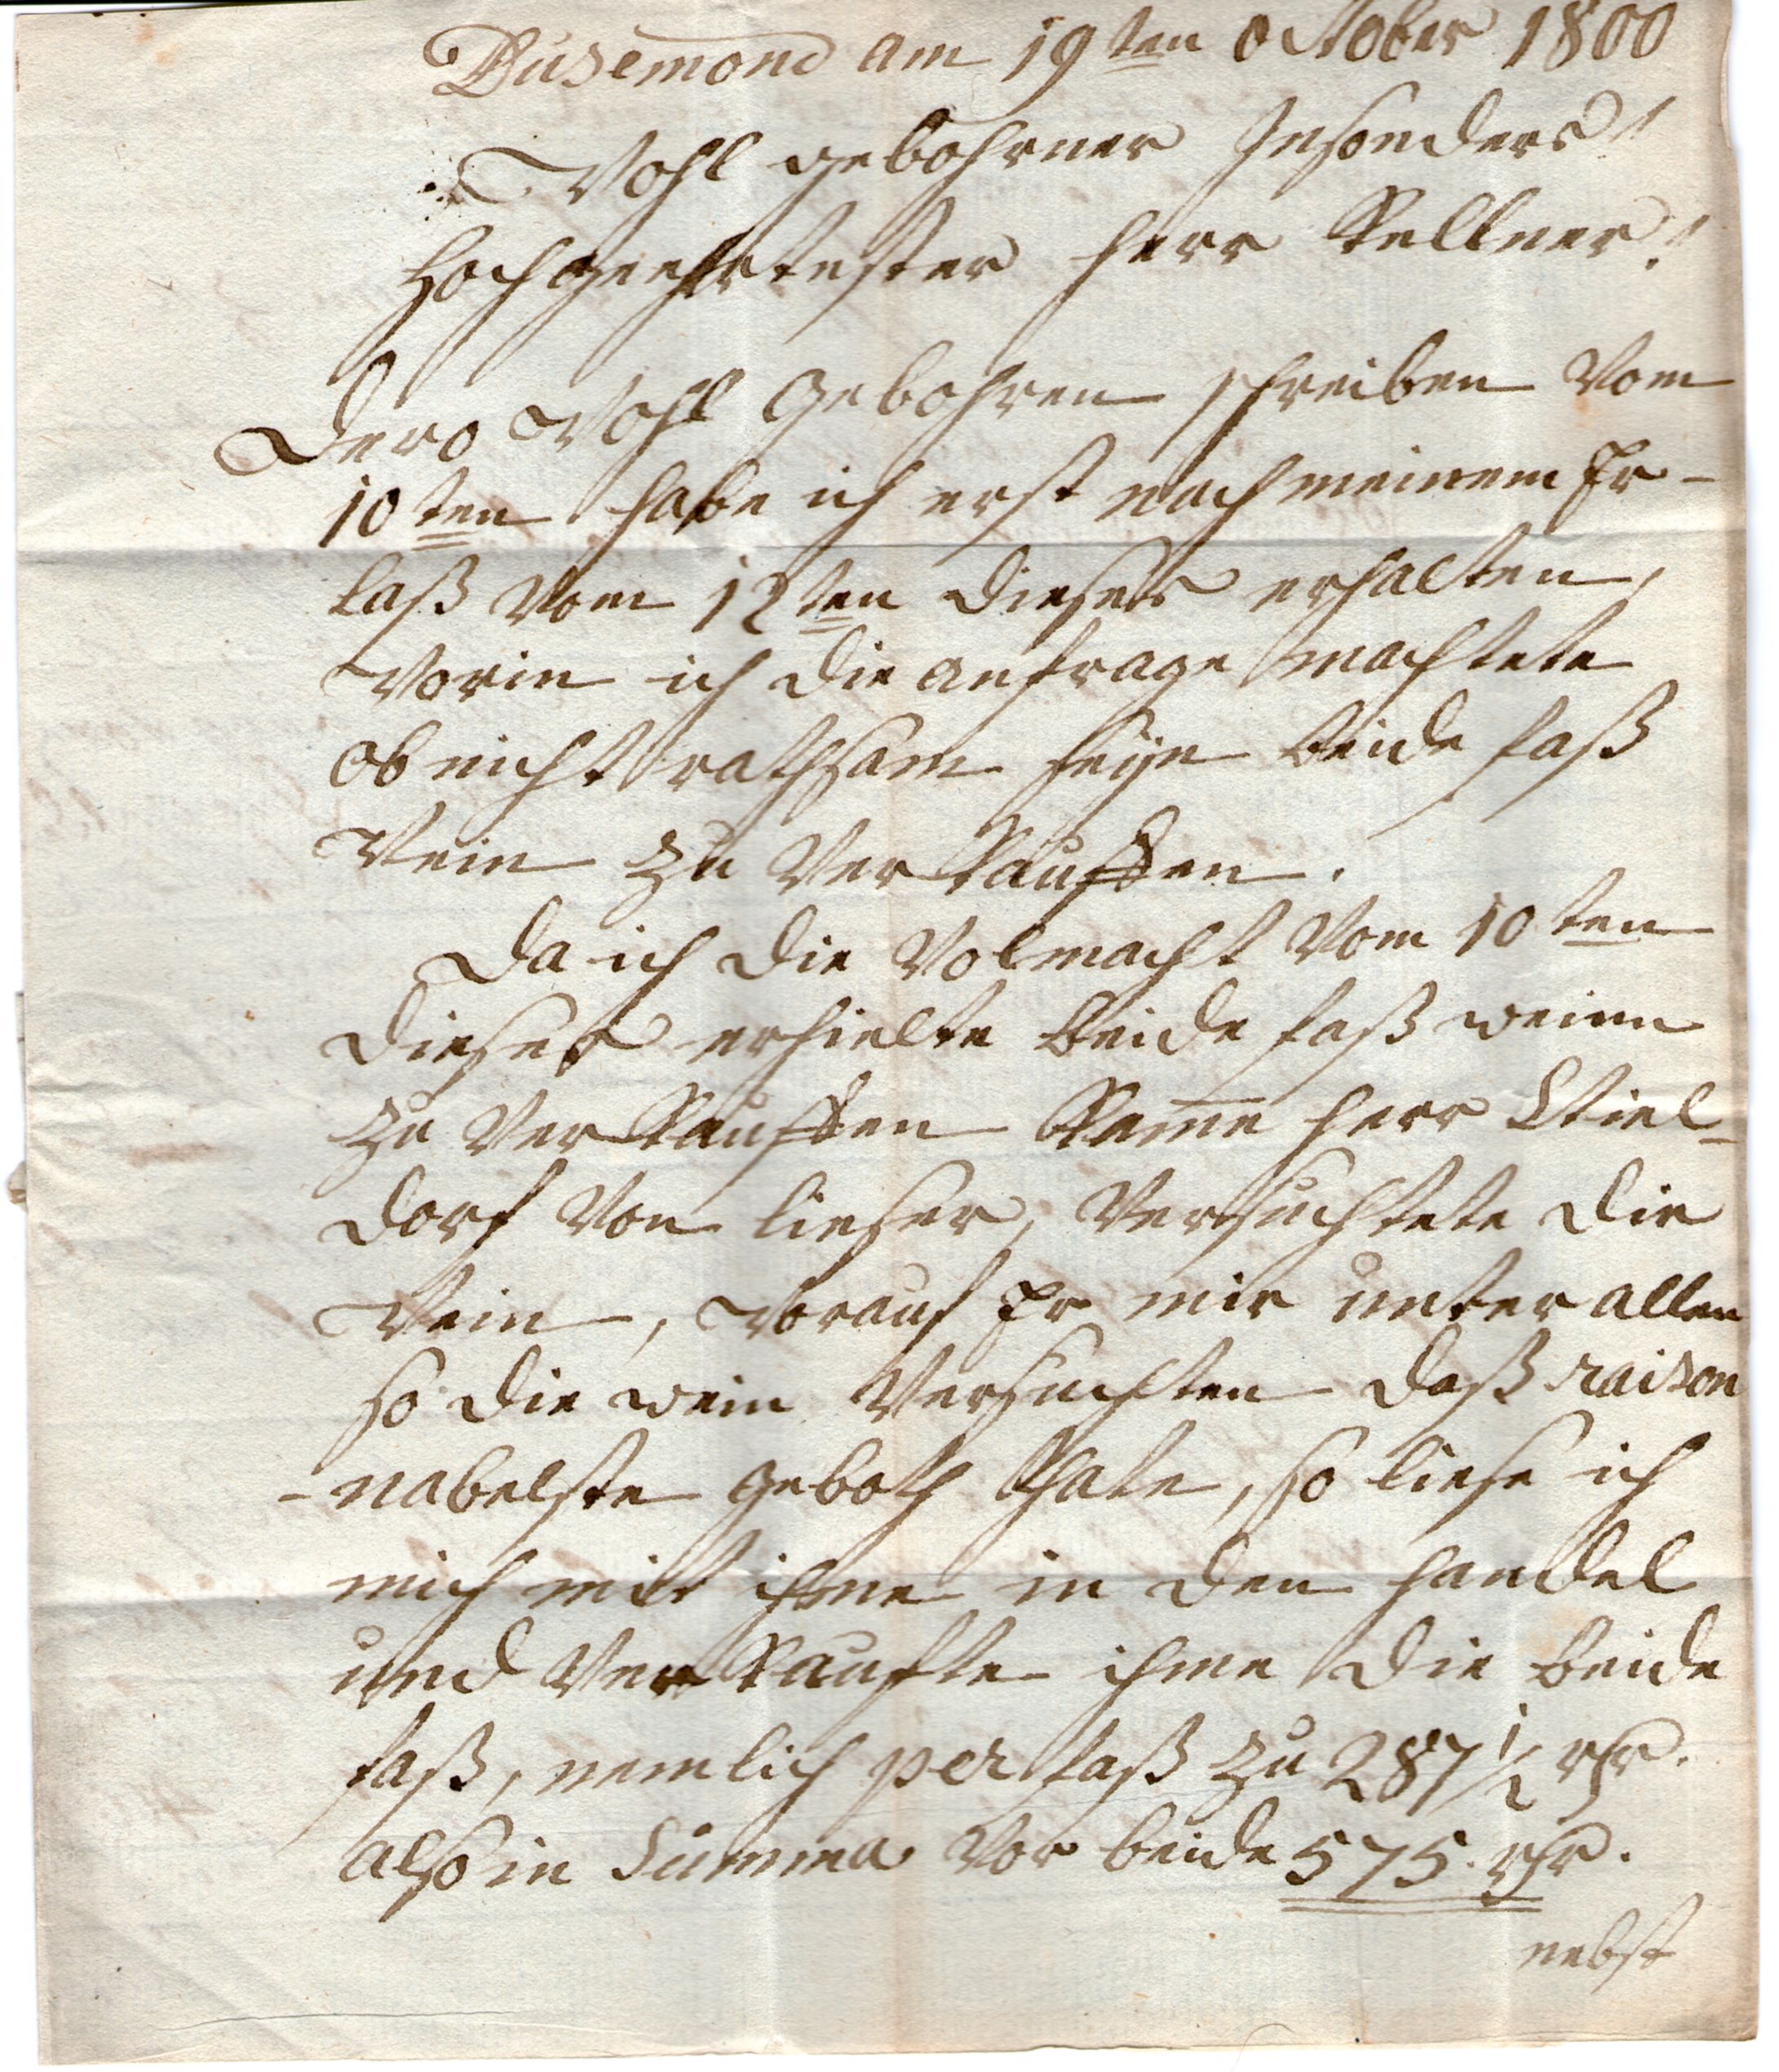 Dusemond am 19ten October 1800
Wohl gebohrner Insonders!
Hochgeehrtester Herr Kellner!
Dero Wohl Gebohren schreiben Vom
10ten habe ich erst nach meinem Er-
laß Vom 12ten dieses erhalten,
Worin ich die anfrage machtete
ob nicht rathsam seÿe beide faß
Wein zu Verkauffen.
Da ich die Volmacht Vom 10ten
dieses erhielte beide faß weinn
zu Verkauffen Kame Herr Stiel-
dorf Von lieser, Versuchtete die
Wein, Worauf Er mir unter allen
so die wein Versuchten daß raison
-nabelste geboth thate, so liese ich
mich mit ihme in den handel
und Verkaufte ihme die beide
faß, nemlich per faß zu 287 1/2 rhr.
also in Summa Vor beide 575. rhr.
nebst